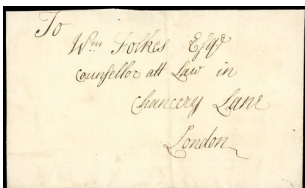 To
Wm Folkes Esqr
Counsellor att Law in
Chancery Lane
London